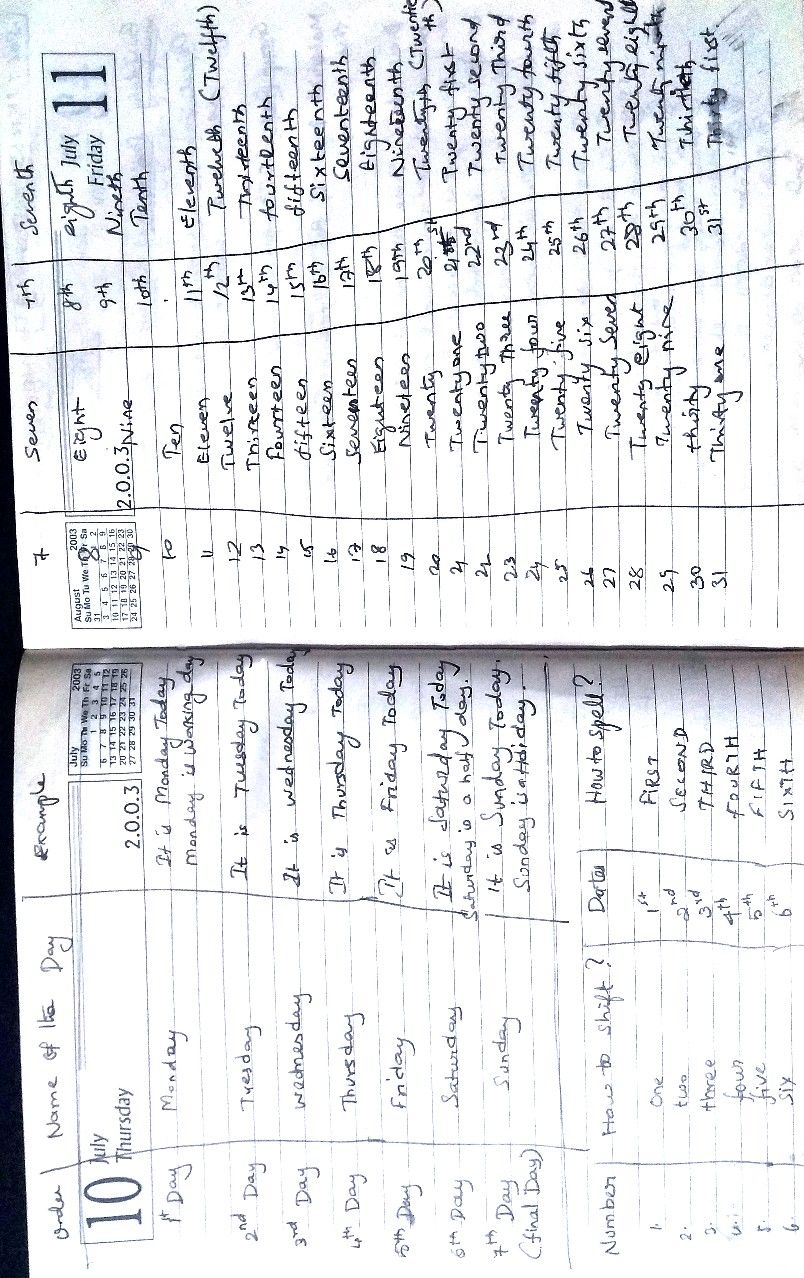 Order Name of the Day Example
10 July Thursday 2.0.0.3
July 2003
Su Mo Tu We Th Fr Sa
1 2 3 4 5
6 7 8 9 10 11 12
13 14 15 16 17 18 19
20 21 22 23 24 25 26
27 28 29 30 31
1st Day Monday It is Monday Today
Monday is working day
2nd Day Tuesday It is Tuesday Today
3rd Day Wednesday It is Wednesday Today
4th Day Thursday It is Thursday Today
5th Day Friday It is Friday Today
6th Day Saturday It is Saturday Today
Saturday is a half day.
7th Day Sunday It is Sunday Today.
(final Day) Sunday is a Holiday.
Number How to shift? Dates How to spell?
1. One 1st FIRST
2. two 2nd SECOND
3. three 3rd THIRD
4. four 4th FOURTH
5. five 5th FIFTH
6. Six 6th SIXTH
7 Seven 7th Seventh
August 2003
Su Mo Tu We Th Fr Sa
31 1 2
3 4 5 6 7 8 9
10 11 12 13 14 15 16
17 18 19 20 21 22 23
24 25 26 27 28 29 30
8 Eight 8th eighth July
2.0.0.3 Friday 11
9 Nine 9th Nineth
10 Ten 10th Tenth
11 Eleven 11th Eleventh
12 Twelve 12th Twelveth (Twelfth)
13 Thirteen 13th Thirteenth
14 Fourteen 14th fourteenth
15 fifteen 15th fifteenth
16 Sixteen 16th Sixteenth
17 Seventeen 17th Seventeenth
18 Eighteen 18th Eighteenth
19 Nineteen 19th Nineteenth
20 Twenty 20th Twentyth (Twentieth)
21 Twenty one 21st Twenty first
22 Twenty two 22nd Twenty second
23 Twenty Three 23rd Twenty Third
24 Twenty four 24th Twenty fourth
25 Twenty five 25th Twenty fifth
26 Twenty six 26th Twenty sixth
27 Twenty Seven 27th Twenty seven
28 Twenty eight 28th Twenty eight
29 Twenty nine 29th Twenty nineth
30 thirty 30th Thirtieth
31 Thirty one 31st Thirty first